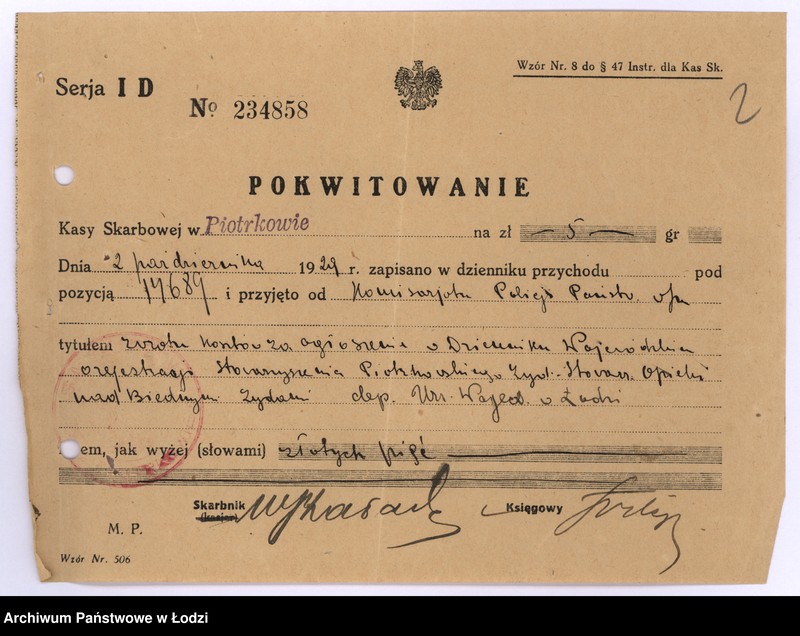 Serja I D
Wzór Nr. 8 do § 47 Instr. dla Kas Sk.
№ 234858
2
POKWITOWANIE
Kasy Skarbowej w Piotrkowie na zł — 5 — gr
Dnia 2 października 1929 r. zapisano w dzienniku przychodu pod
pozycją 17689 i przyjęto od Komisarjatu Policji Państw.
tytułem zwrotu kosztów za ogłoszenie w Dzienniku Wojewódzkim
o rejestracji Stowarzyszenia Piotrkowskiego Żyd. Stowarz. Opieki
nad Biednymi Żydami dep. Urz. Wojew. w Łodzi
em, jak wyżej (słowami) złotych pięć
Skarbnik
(kasjer)
Księgowy
M. P.
Wzór Nr. 506
Archiwum Państwowe w Łodzi